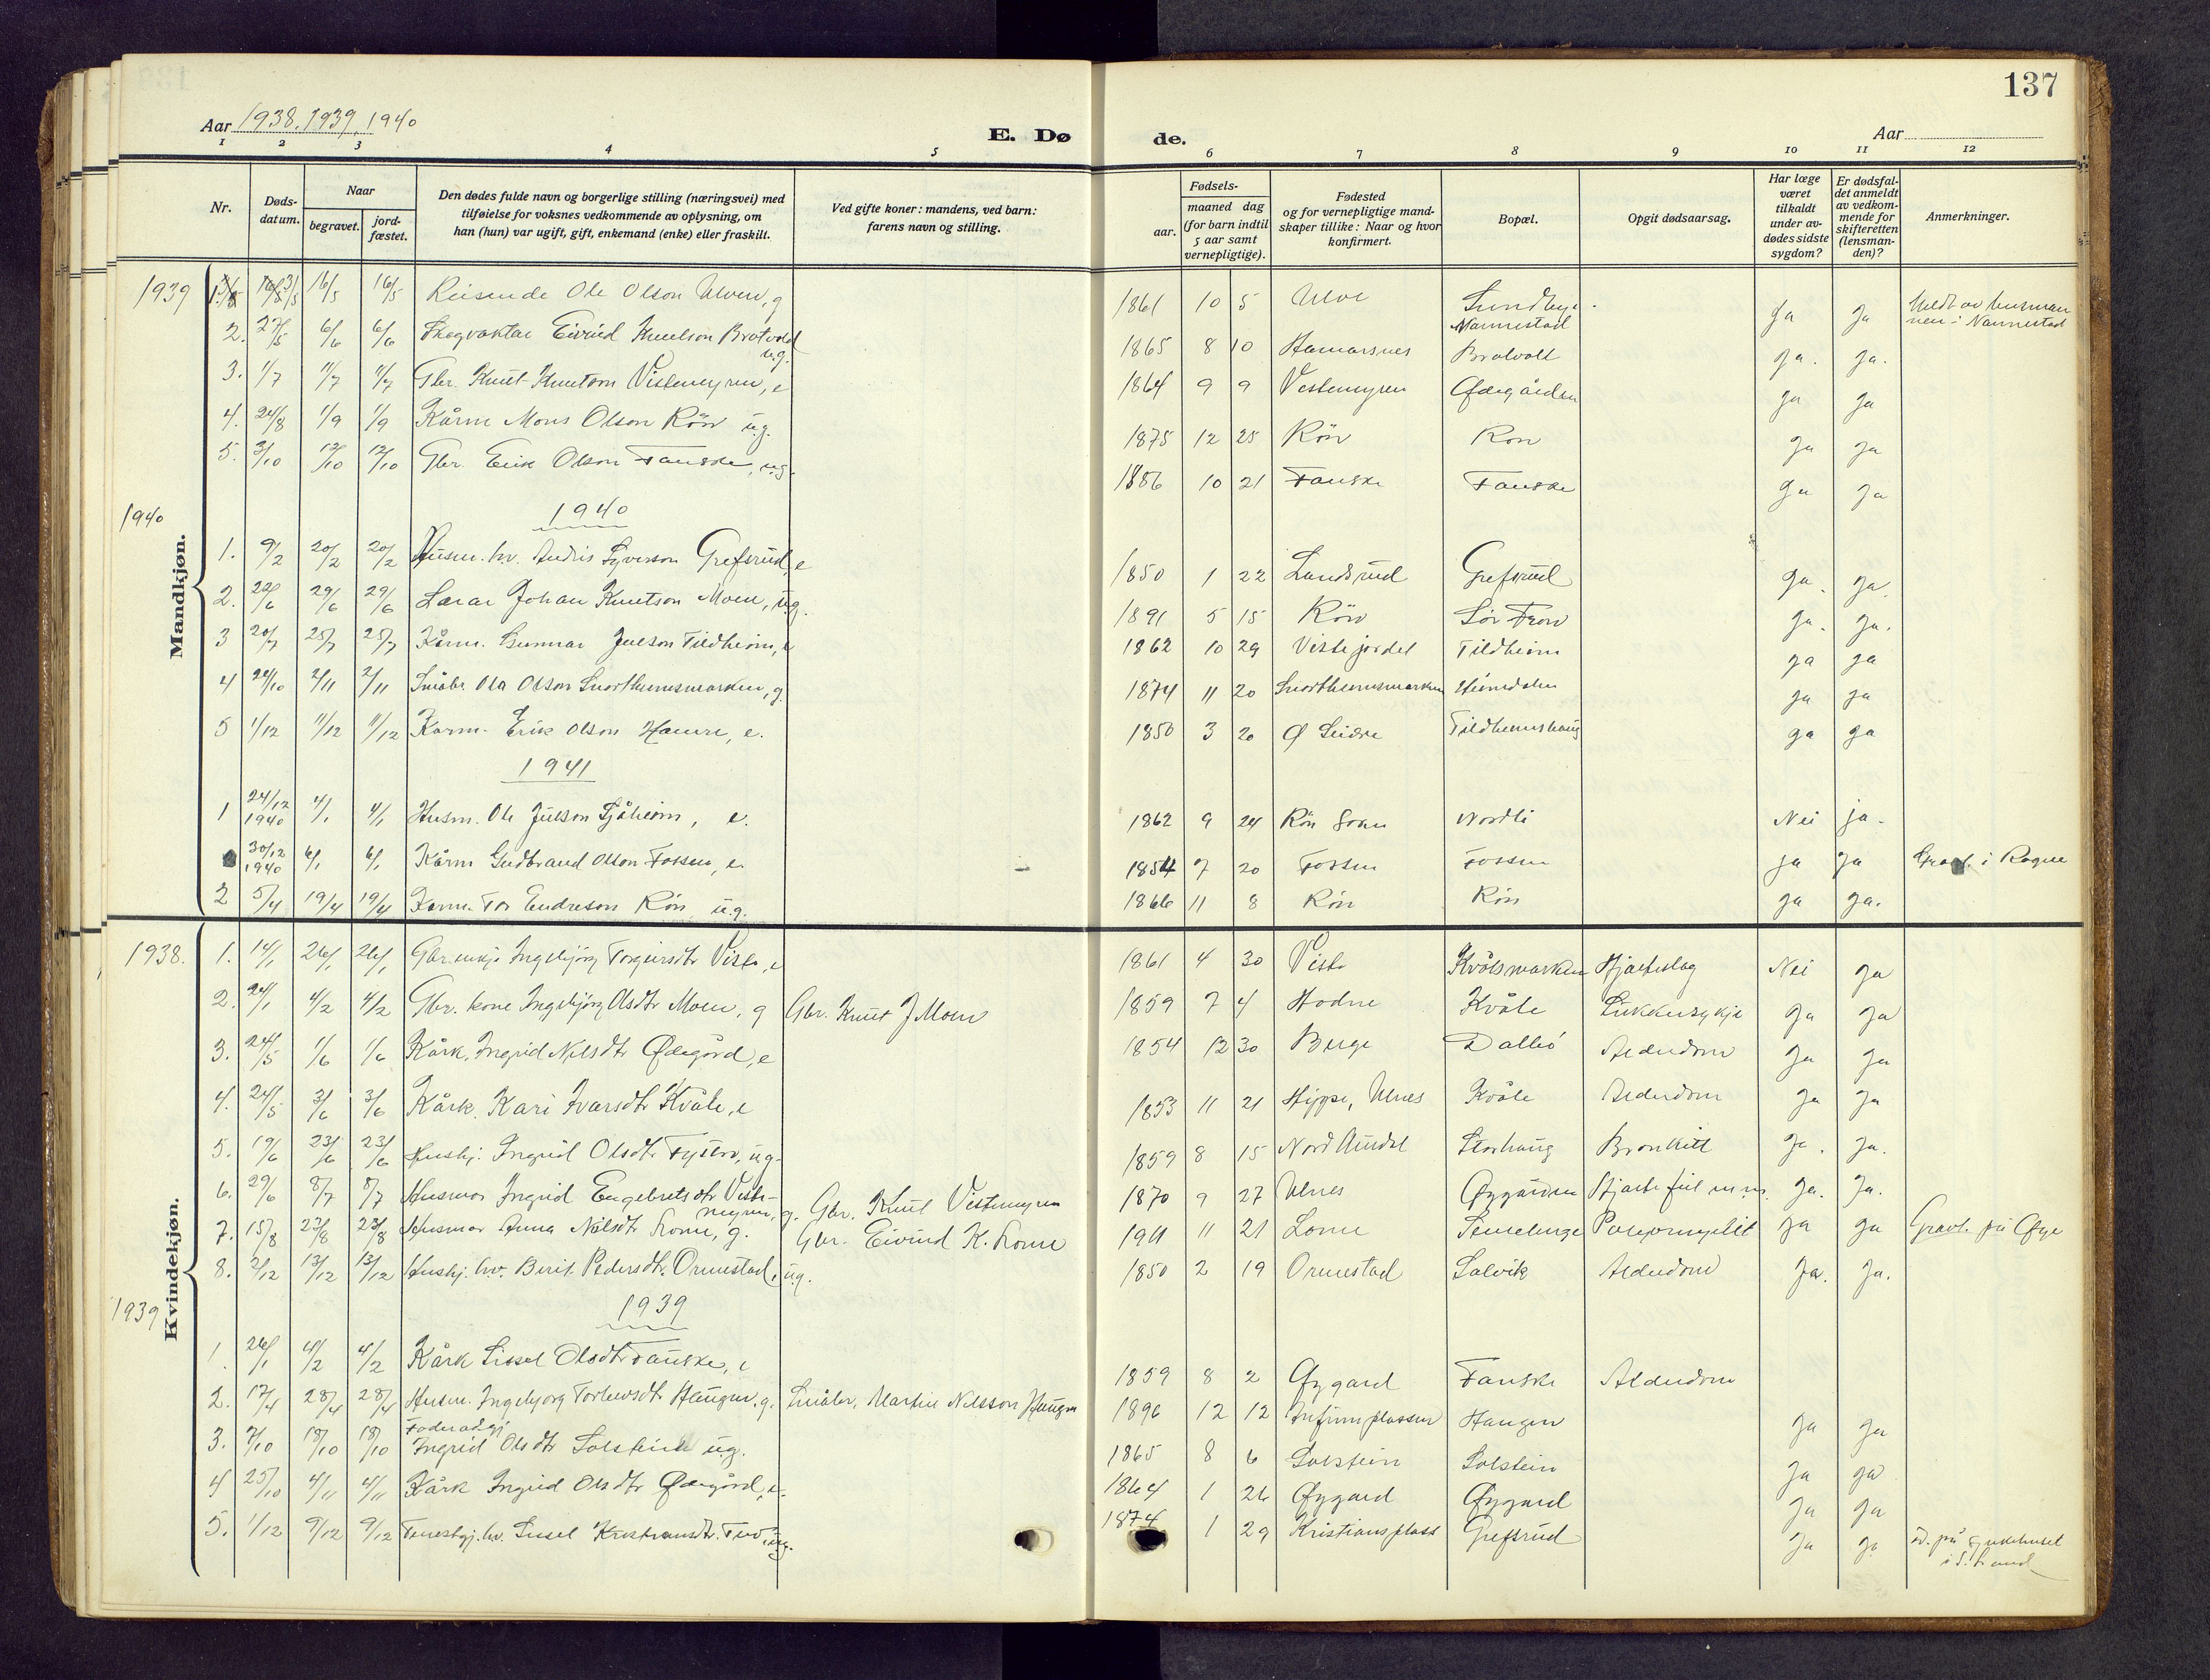 137
Aar 1938. 1939. 1940
E. Dø
de.
Aar
1 2 3 4 5 6 7 8 9 10 11 12
Nr.
Døds-
datum.
Naar
begravet.
jord-
fæstet.
Den dødes fulde navn og borgerlige stilling (næringsvei) med
tilføielse for voksnes vedkommende av oplysning, om
han (hun) var ugift, gift, enkemand (enke) eller fraskilt.
Ved gifte koner: mandens, ved barn:
farens navn og stilling.
Fødsels-
aar.
maaned dag
(for barn indtil
5 aar samt
vernepligtige).
Fødested
og for vernepligtige mand-
skaper tillike: Naar og hvor
konfirmert.
Bopæl.
Opgit dødsaarsag.
Har læge
været
tilkaldt
under av-
dødes sidste
sygdom?
Er dødsfal-
det anmeldt
av vedkom-
mende for
skifteretten
(lensman-
den)?
Anmerkninger.
Mandkjøn.
1939 16/5 16/5 Reisende Ole Olson Ulven, g 1861 10 5 Ulve Sundby Nannestad ja ja Meldt av lensman
nen i Nannestad
2. 27/5 6/6 6/6 Skogvaktar Eivind Knutson Bratvold u.g. 1865 8 10 Hamarsnes Bratvoll ja. ja.
3. 1/7 11/7 11/7 Gbr. Knut Knutson Vistemyren, e 1864 9 9 Vestemyren Ødegården ja ja
4. 24/8 1/9 1/9 Kårm Mons Olson Rön u.g. 1875 12 25 Rön Ron ja ja
5. 3/10 12/10 12/10 Gbr. Erik Olson Fauske, u.g. 1886 10 21 Fauske Fauske ja ja
1940
1940
1. 9/2 20/2 20/2 Husm. hv. Andris Syverson Grefsrud, e 1850 1 22 Landsrud Grefsrud ja. ja.
2. 22/6 29/6 29/6 Lærar Johan Knutson Moen, u.g. 1891 5 15 Rön Sör Fron ja. ja.
3 20/7 25/7 25/7 Kårm. Gunnar Julson Tildheim, e 1862 10 29 Vistejordet Tildheim ja ja
4 24/10 2/11 2/11 Småbr. Ola Olson Snortheimsmarken, g. 1874 11 20 Snortheimsmarken Heimdalen ja ja
5 1/12 11/12 11/12 Karm. Erik Olson Hamre, e. 1850 3 20 Ø Slidre Tildheimshaug ja ja
1941
1 24/12 1940 4/1 4/1 Husm. Ole Julson Sjåheim, e. 1862 9 24 Rön Nordli Nei ja.
30/12 1940 6/1 6/1 Kårm Gudbrand Olson Fossen, e. 1854 7 20 Fossen Fossen ja ja Gravl. i Rogne
2 5/4 19/4 19/4 Karm. Tor Endreson Rön u.g. 1866 11 8 Rön Rön ja ja.
Kvindekjøn.
1938. 1. 14/1 26/1 26/1 Gbr.enkje Ingebjörg Torgeirsdtr Viste, e 1861 4 30 Viste Kvålsmarken Hjarteslag Nei ja
2. 24/1 4/2 4/2 Gbr. kone Ingebjörg Olsdtr Moen, g Gbr. Knut J Moen 1859 7 4 Hodne Kvåle Sukkersykje ja ja
3. 24/5 1/6 1/6 Kårk. Ingrid Nilsdtr Ødegård, e 1854 12 30 Berge Dalbö Alderdom ja ja
4. 24/5 3/6 3/6 Kårk. Kari Ivarsdtr Kvåle, e 1853 11 21 Hippe, Ulnes Kvåle Alderdom ja ja
5. 19/6 23/6 23/6 Hushj. Ingrid Olsdtr Fystro, u.g. 1859 8 15 Nord Aurdal Storhaug Bronkitt ja. ja.
6. 29/6 8/7 8/7 Husmor Ingrid Engebretsdtr Viste-
myren, g. Gbr. Knut Vistemyren 1870 9 27 Ulnes Øygarden Hjartefeil m.m. ja. ja.
7. 15/8 23/8 23/8 Husmor Anna Nilsdt Lome, g. Gbr. Eivind K. Lome 1911 11 21 Lome Semelenge ja ja Gravl. på Øye
8. 2/12 13/12 13/12 Hushj. hv. Berit Pedersdt. Ormestad, u.g. 1850 2 19 Ormestad Solvik Alderdom Ja. ja.
1939
1939
1. 26/1 4/2 4/2 Kårk Sissel Olsdtr Fauske, e 1859 8 2 Øygard Fauske Alderdom
2. 17/4 28/4 28/4 Husm. Ingebjörg Torleivsdtr Haugen. g. Småbr. Martin Nilsson Haugen 1896 12 12 Haugen ja ja
3. 7/10 18/10 18/10 Föderådgj
Ingrid Olsdtr Solstein u.g. 1865 8 6 Solstein Solstein ja ja
4 25/10 4/11 4/11 Kårk Ingrid Olsdtr Ødegård, e. 1864 1 26 Øygard Øygard ja ja
5. 1/12 9/12 9/12 Tenestgj. hv. Sissel Kristiansdt. u.g. 1874 1 29 Kristiansplass Grefsrud ja ja d. på sjukehuset
i S. Land